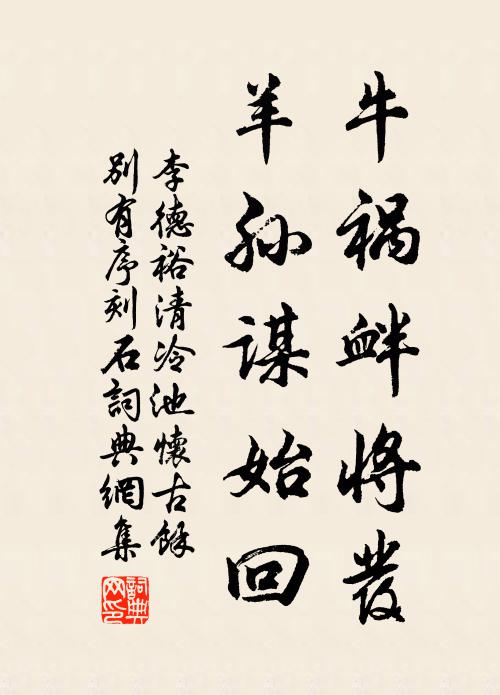 牛祸衅将發
羊孙谋始回
李德裕清冷池懷古餘
别有序刻石詞典網集
詞典网印